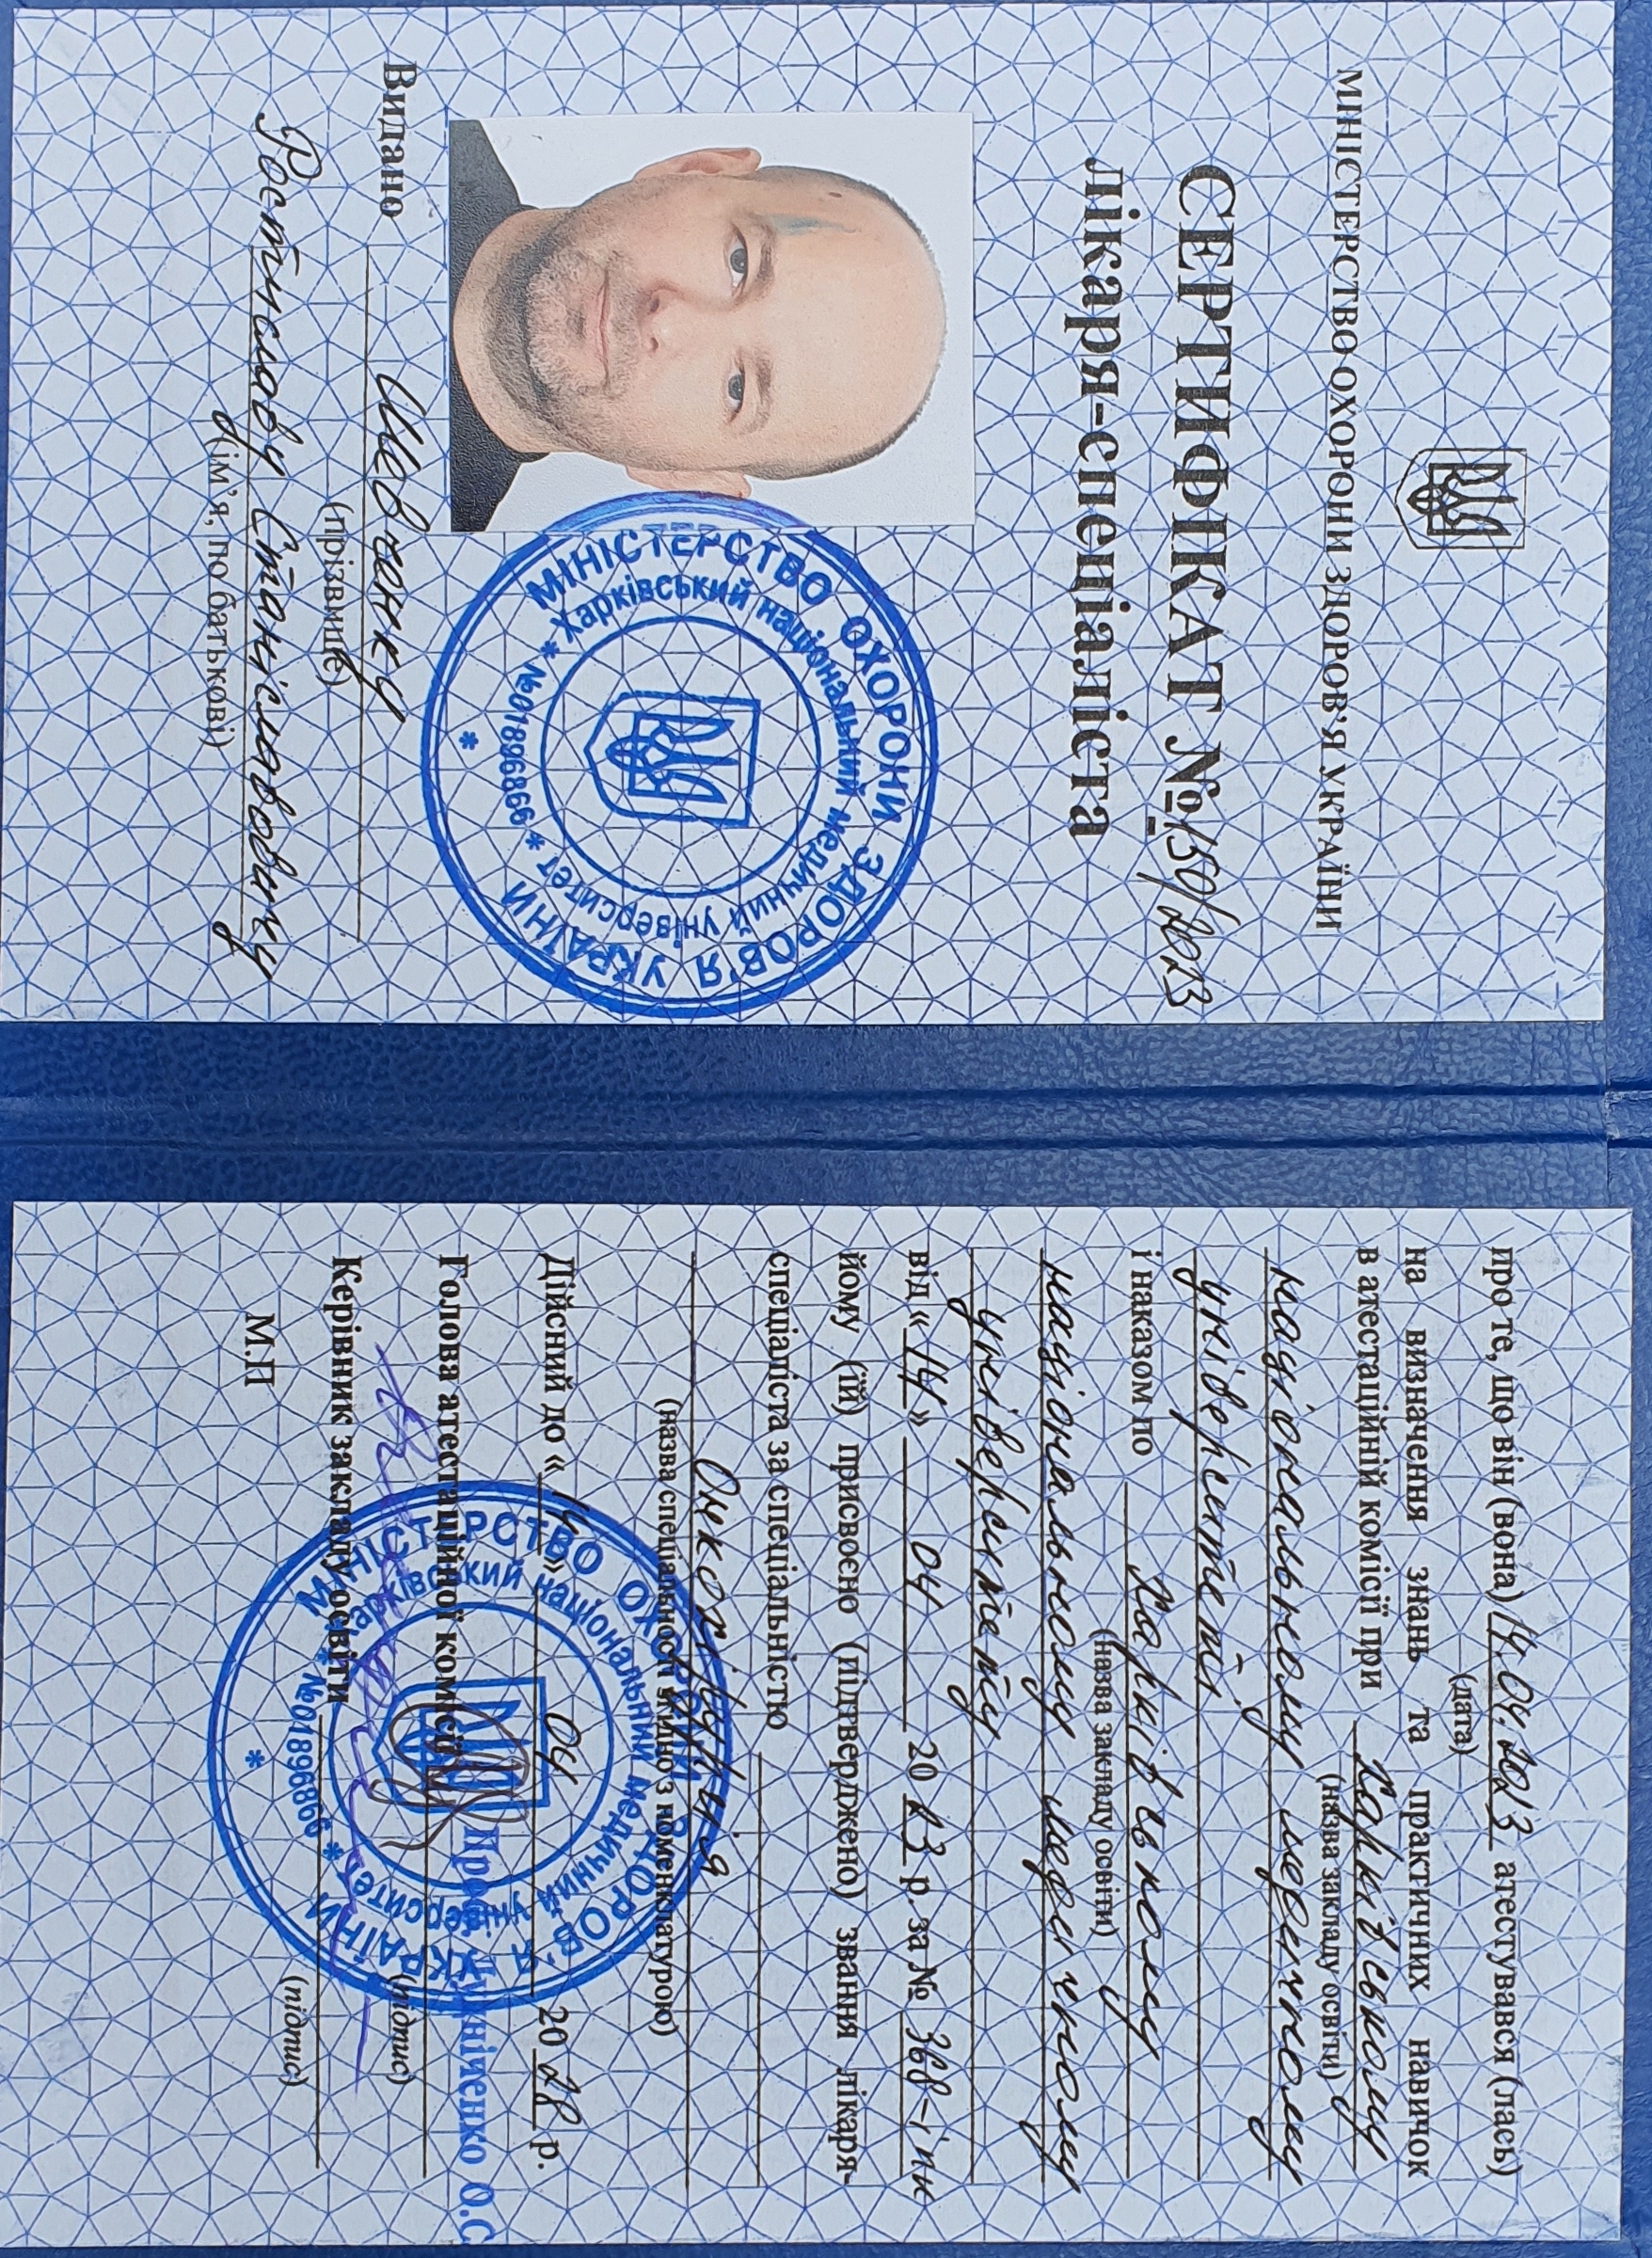 МІНІСТЕРСТВО ОХОРОНИ ЗДОРОВ'Я УКРАЇНИ
СЕРТИФІКАТ № 150/2023
лікаря-спеціаліста
МІНІСТЕРСТВО ОХОРОНИ ЗДОРОВ'Я УКРАЇНИ
* Харківський національний медичний університет *
№01896866
*
Видано Шевченку
(прізвище)
Ростиславу Станіславовичу
(ім'я, по батькові)
про те, що він (вона) 14.04.2023 атестувався (лась)
(дата)
на визначення знань та практичних навичок
в атестаційній комісії при Харківському
(назва закладу освіти)
національному медичному
університеті
і наказом по Харківському
(назва закладу освіти)
національному медичному
університету
від «14» 04 2023 р. за № 368-іпк
йому (їй) присвоєно (підтверджено) звання лікаря-
спеціаліста за спеціальністю
Онкохірургія
(назва спеціальності згідно з номенклатурою)
Дійсний до «14» 04 2028 р.
Голова атестаційної комісії
(підпис)
Керівник закладу освіти
(підпис)
М.П
МІНІСТЕРСТВО ОХОРОНИ ЗДОРОВ'Я УКРАЇНИ
Харківський національний медичний університет *
* №01896866
*